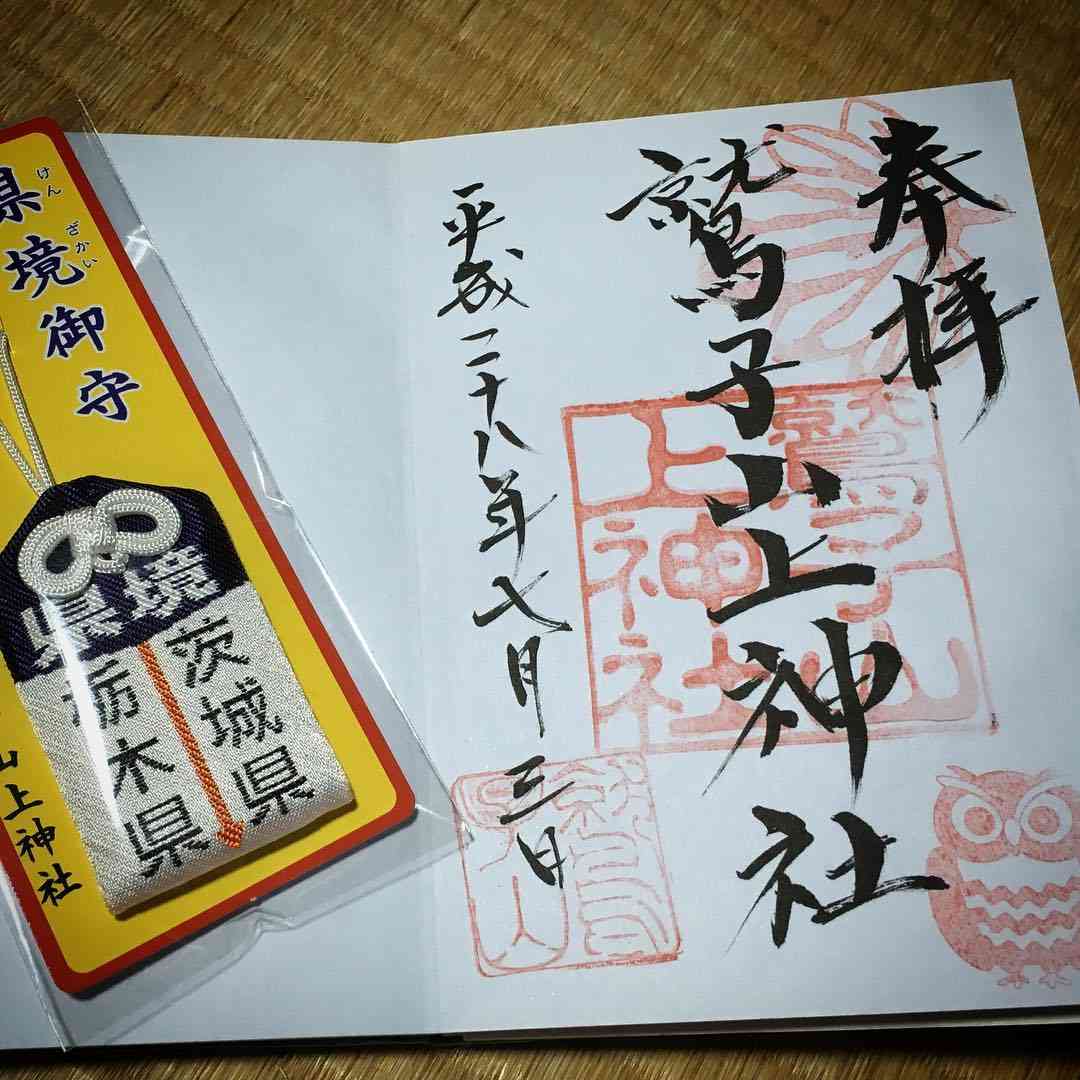 奉拝
鷲子山上神社
平成二十八年七月三日
鷲子山
上神社
県境御守
けんざかい
県境
茨城県
栃木県
山上神社